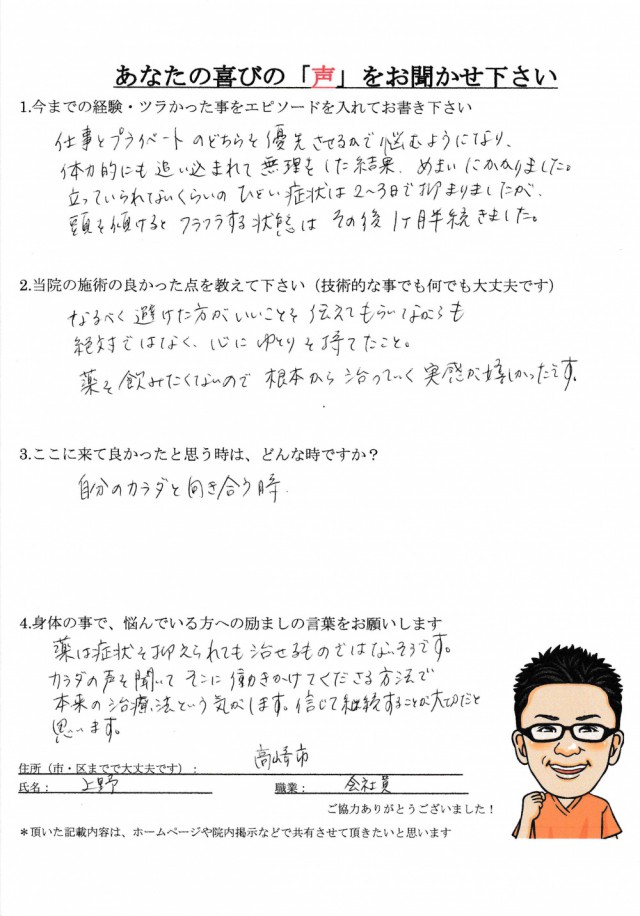 あなたの喜びの「声」をお聞かせ下さい
1.今までの経験・ツラかった事をエピソードを入れてお書き下さい
仕事とプライベートのどちらを優先させるかで悩むようになり、
体力的にも追い込まれて無理をした結果、めまいにかかりました。
立っていられないくらいのひどい症状は2~3日で抑まりましたが、
頭を傾けるとフラフラする状態はその後1ヶ月半続きました。
2.当院の施術の良かった点を教えて下さい（技術的な事でも何でも大丈夫です）
なるべく避けた方がいいことを伝えてもらいながらも
絶対ではなく、心にゆとりを持てたこと。
薬を飲みたくないので根本から治っていく実感が嬉しかったです。
3.ここに来て良かったと思う時は、どんな時ですか？
自分のカラダと向き合う時。
4.身体の事で、悩んでいる方への励ましの言葉をお願いします
薬は症状を抑えられても治せるものではないそうです。
カラダの声を聞いてそこに働きかけてくださる方法で
本来の治療法という気がします。信じて継続することが大切だと
思います。
住所（市・区までで大丈夫です）： 高崎市
氏名： 上野 職業： 会社員
ご協力ありがとうございました！
＊頂いた記載内容は、ホームページや院内掲示などで共有させて頂きたいと思います